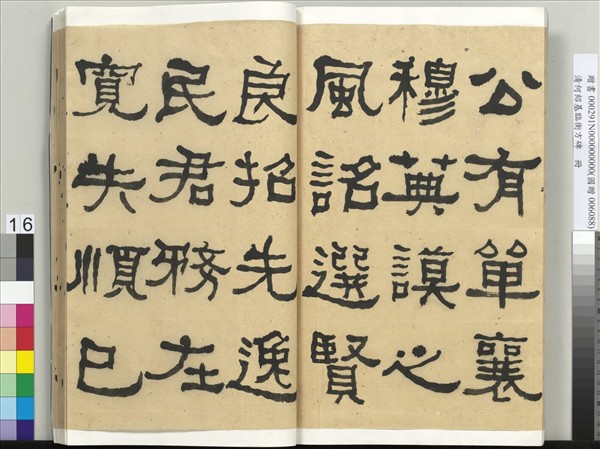 公有單襄
穆典謨之
風詔選賢
良招先逸
民君務在
寬失順已
贈書 000291N000000000(國贈 006088)
清何紹基臨衡方碑 冊
16